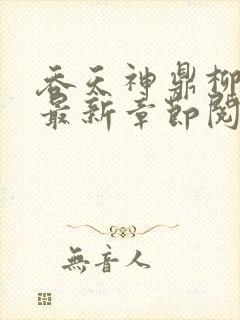 吞天神鼎柳
最新章節閱
無音人